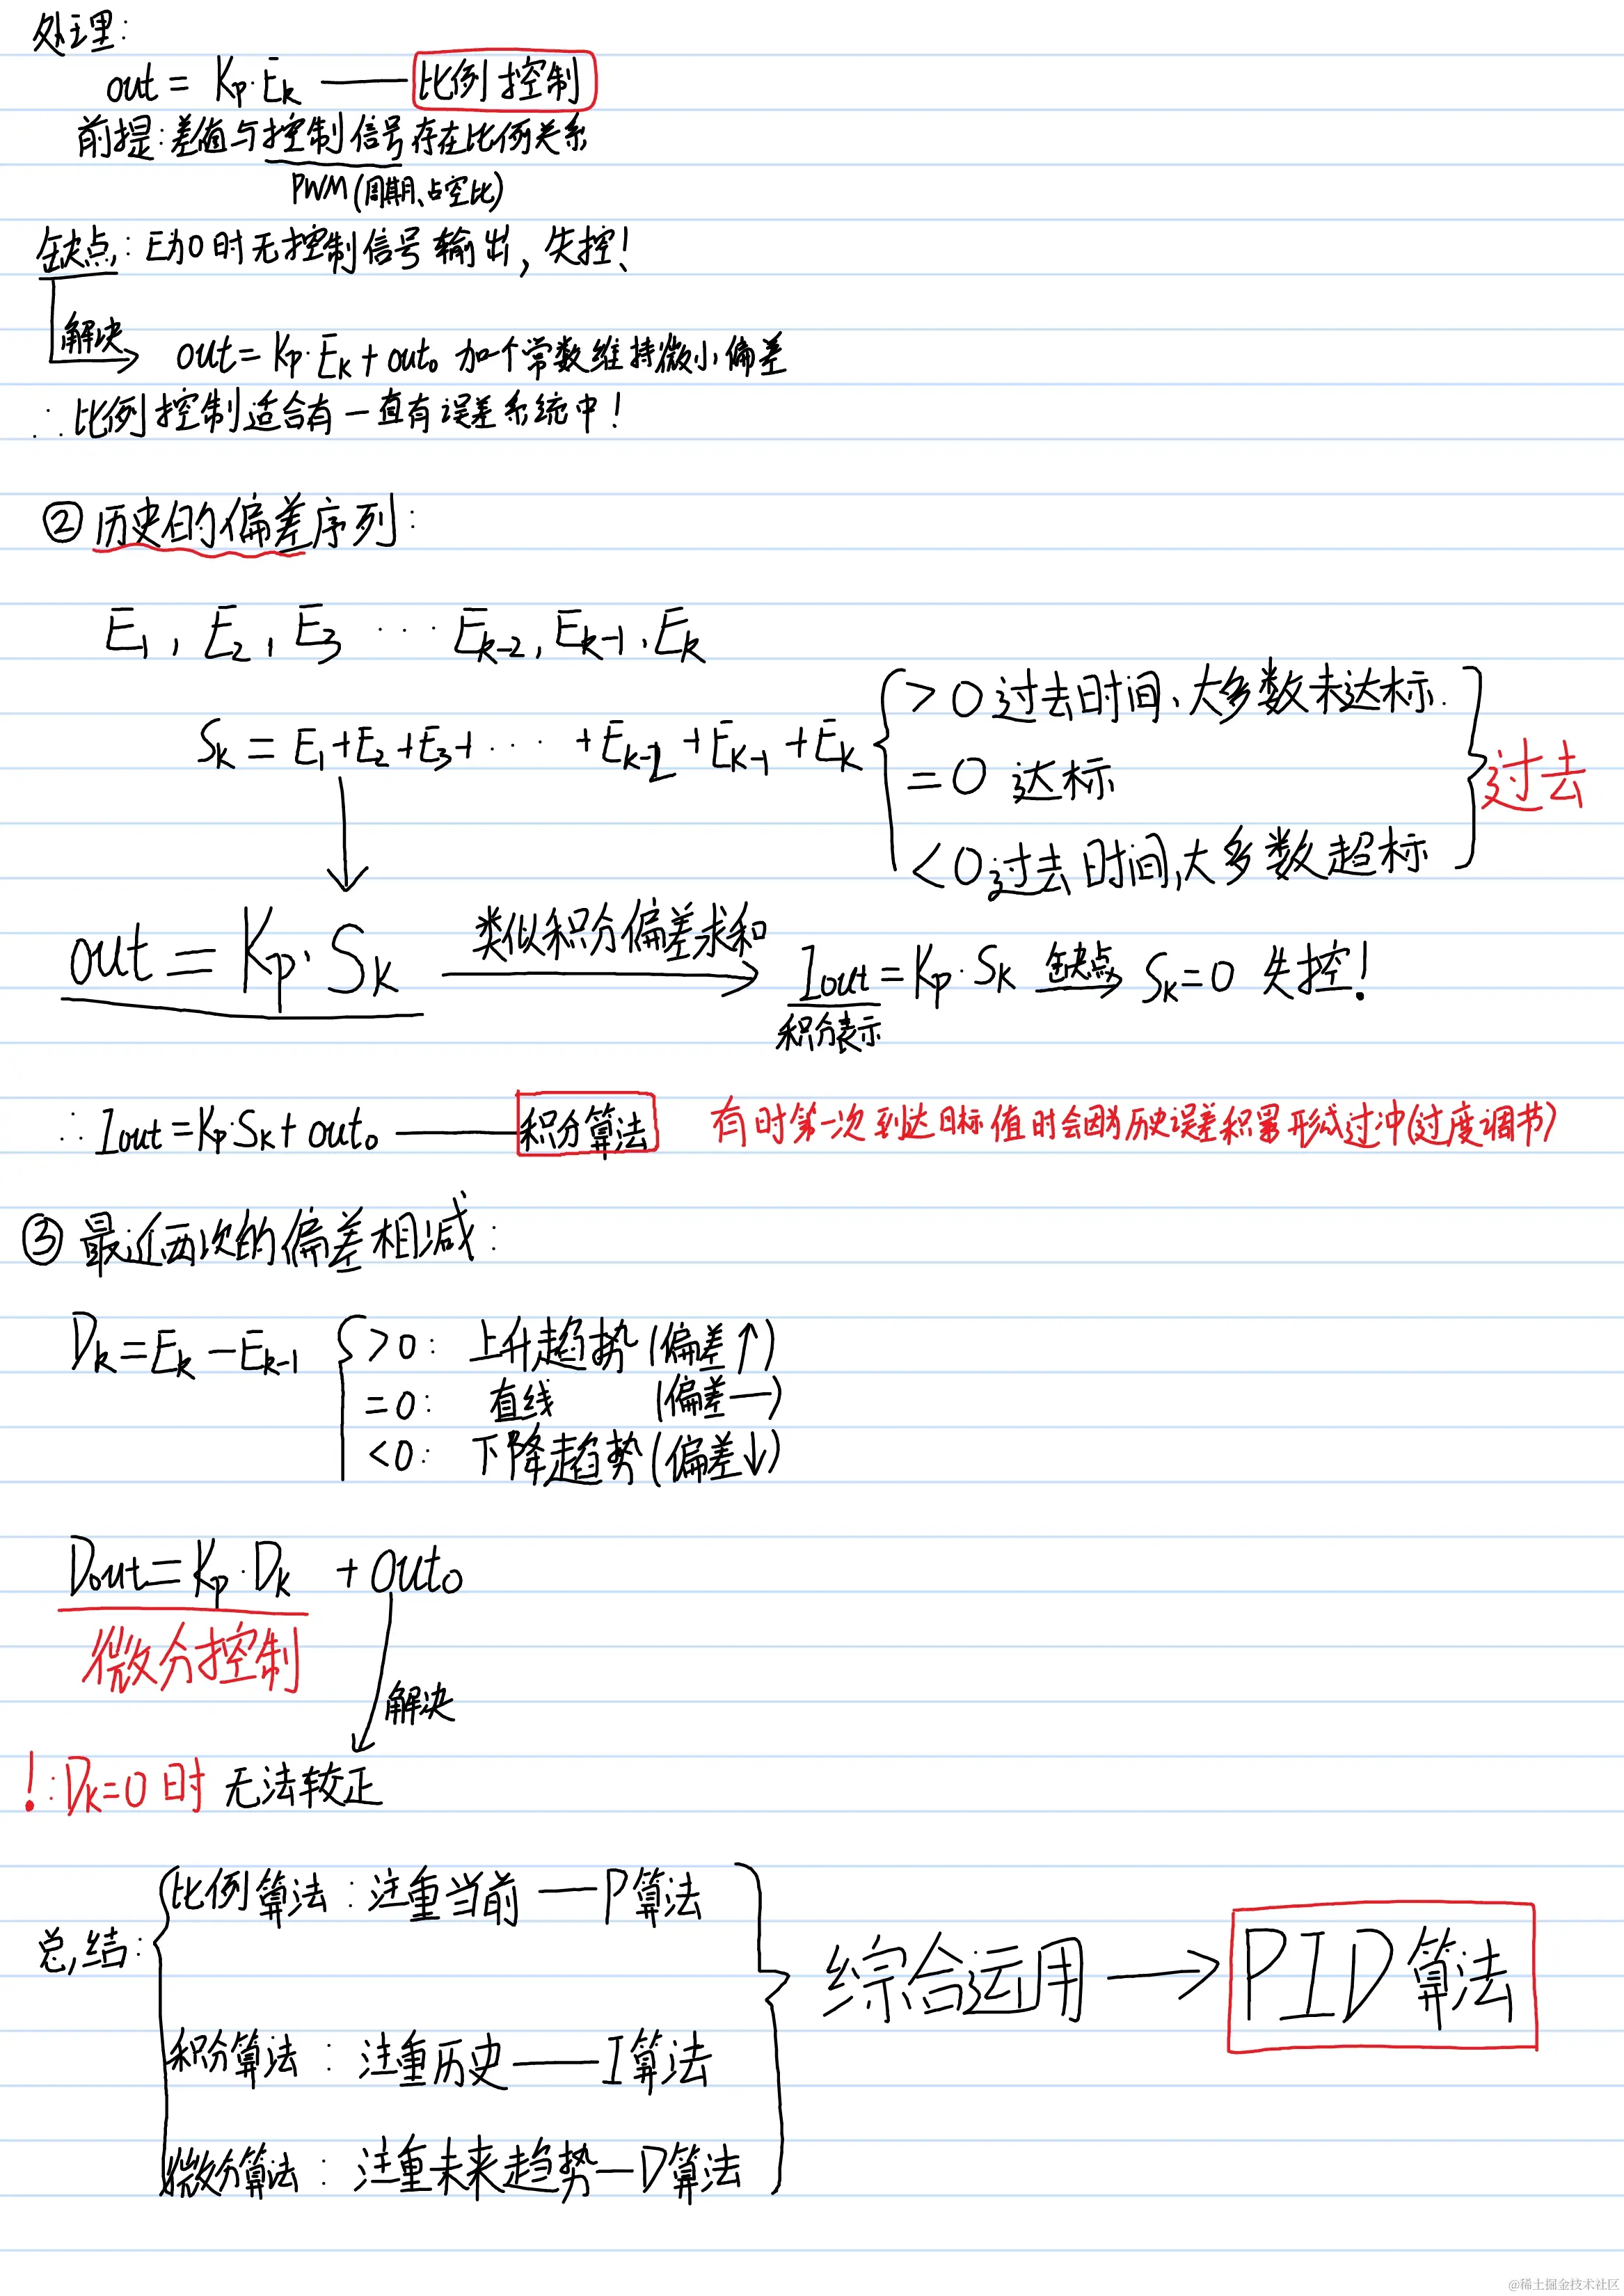 处理:
out = Kp·Ek —— 比例控制
前提:差值与控制信号存在比例关系
PWM(周期、占空比)
缺点:E为0时无控制信号输出,失控!
解决 out=Kp·Ek+out₀ 加个常数维持微小偏差
∴比例控制适合有一直有误差系统中!
② 历史的偏差序列:
E₁, E₂, E₃ ··· Ek-2, Ek-1, Ek
>0 过去时间、大多数未达标.
Sk = E₁+E₂+E₃+ ··· +Ek-2+Ek-1+Ek
=0 达标
过去
<0 过去时间,大多数超标
out = Kp·Sk 类似积分偏差求和 Iout=Kp·Sk 缺点 Sk=0 失控!
积分表示
∴ Iout=Kp·Sk+out₀ —— 积分算法 有时第一次到达目标值时会因为历史误差积累形成过冲(过度调节)
③ 最近两次的偏差相减:
Dk=Ek-Ek-1 >0: 上升趋势(偏差↑)
=0: 直线 (偏差—)
<0: 下降趋势(偏差↓)
Dout=Kp·Dk +out₀
微分控制
解决
!:Dk=0时 无法较正
比例算法:注重当前——P算法
总结: 综合运用→PID算法
积分算法:注重历史——I算法
微分算法:注重未来趋势—D算法
@稀土掘金技术社区